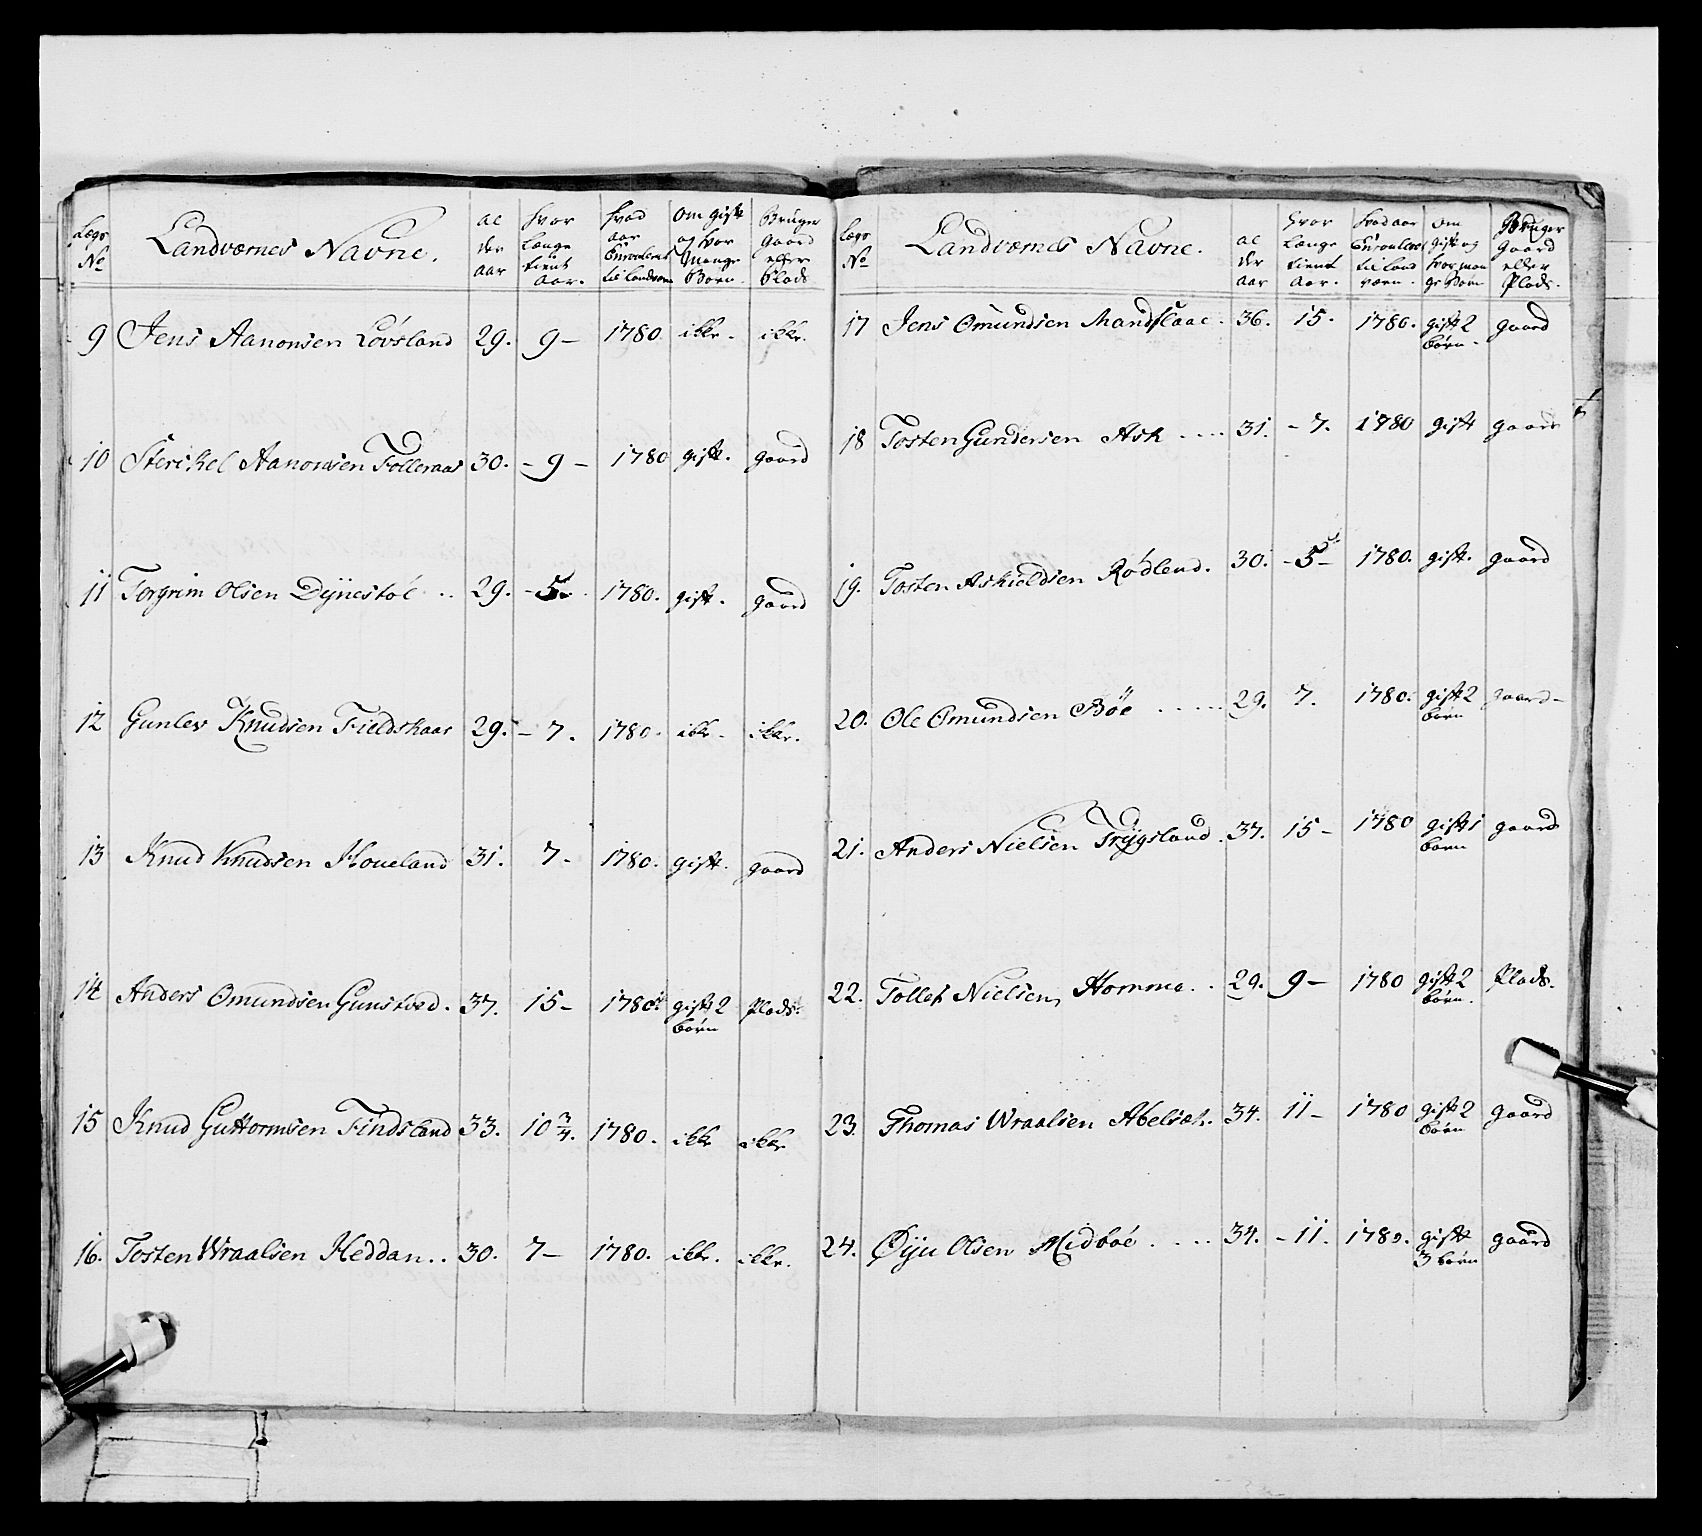 Lægs No | Landværnes Navne. | al der aar | hvor længe tient aar. | hvad aar Enroulert til landværn | om gift og hvor mange Børn. | Bruger gaard eller Plads
9 Jens Aanonsen Løvsland 29. 9 – 1780 ikke. ikke.
10 Sterckel Aanonsen Folleraas 30. – 9 – 1780 gift. gaard
11 Torgrim Olsen Dÿnestøl .. 29. – 5. 1780. gift. gaard
12 Gunlev Knudsen Fieldskaar 29. – 7. 1780. ikke. ikke.
13 Knud Knudsen Houeland 31. 7. 1780. gift. gaard
14 Anders Omundsen Gunstved. 37. 15 – 1780. gift 2 Plads.
børn
15 Knud Guttormsen Findsland 33. 10 3/4. 1780. ikke ikke
16. Tosten Wraalsen Heddan .. 30. 7 – 1780. ikke. ikke.
Lægs No | Landværnes Navne. | al der aar | hvor længe tient aar. | hvad aar Enroulert til land værn. | om gift og hvor man ge Børn | Bruger gaard eller Plads.
17 Jens Omundsen Mandflaae. 36. 15. 1780. gift 2 gaard
børn.
18 Tosten Gundersen Ask .... 31. – 7. 1780 gift gaard
19. Tosten Askieldsen Rødland. 30. – 5 – 1780. gift. gaard
20. Ole Omundsen Bøe ..... 29. 7. 1780. gift 2 gaard –
børn
21. Anders Nielsen Trÿgsland. 37. 15 – 1780 gift 1 gaard
barn
22. Tollef Nielsen Homme .. 29. 9 – 1780 gift 2 Plads.
børn.
23. Thomas Wraalsen Abelsæt. 34. 11 – 1780 gift 2 gaard
børn
24. Øÿu Olsen Midbøe .... 34. – 11. 1780. gift gaard
3 børn